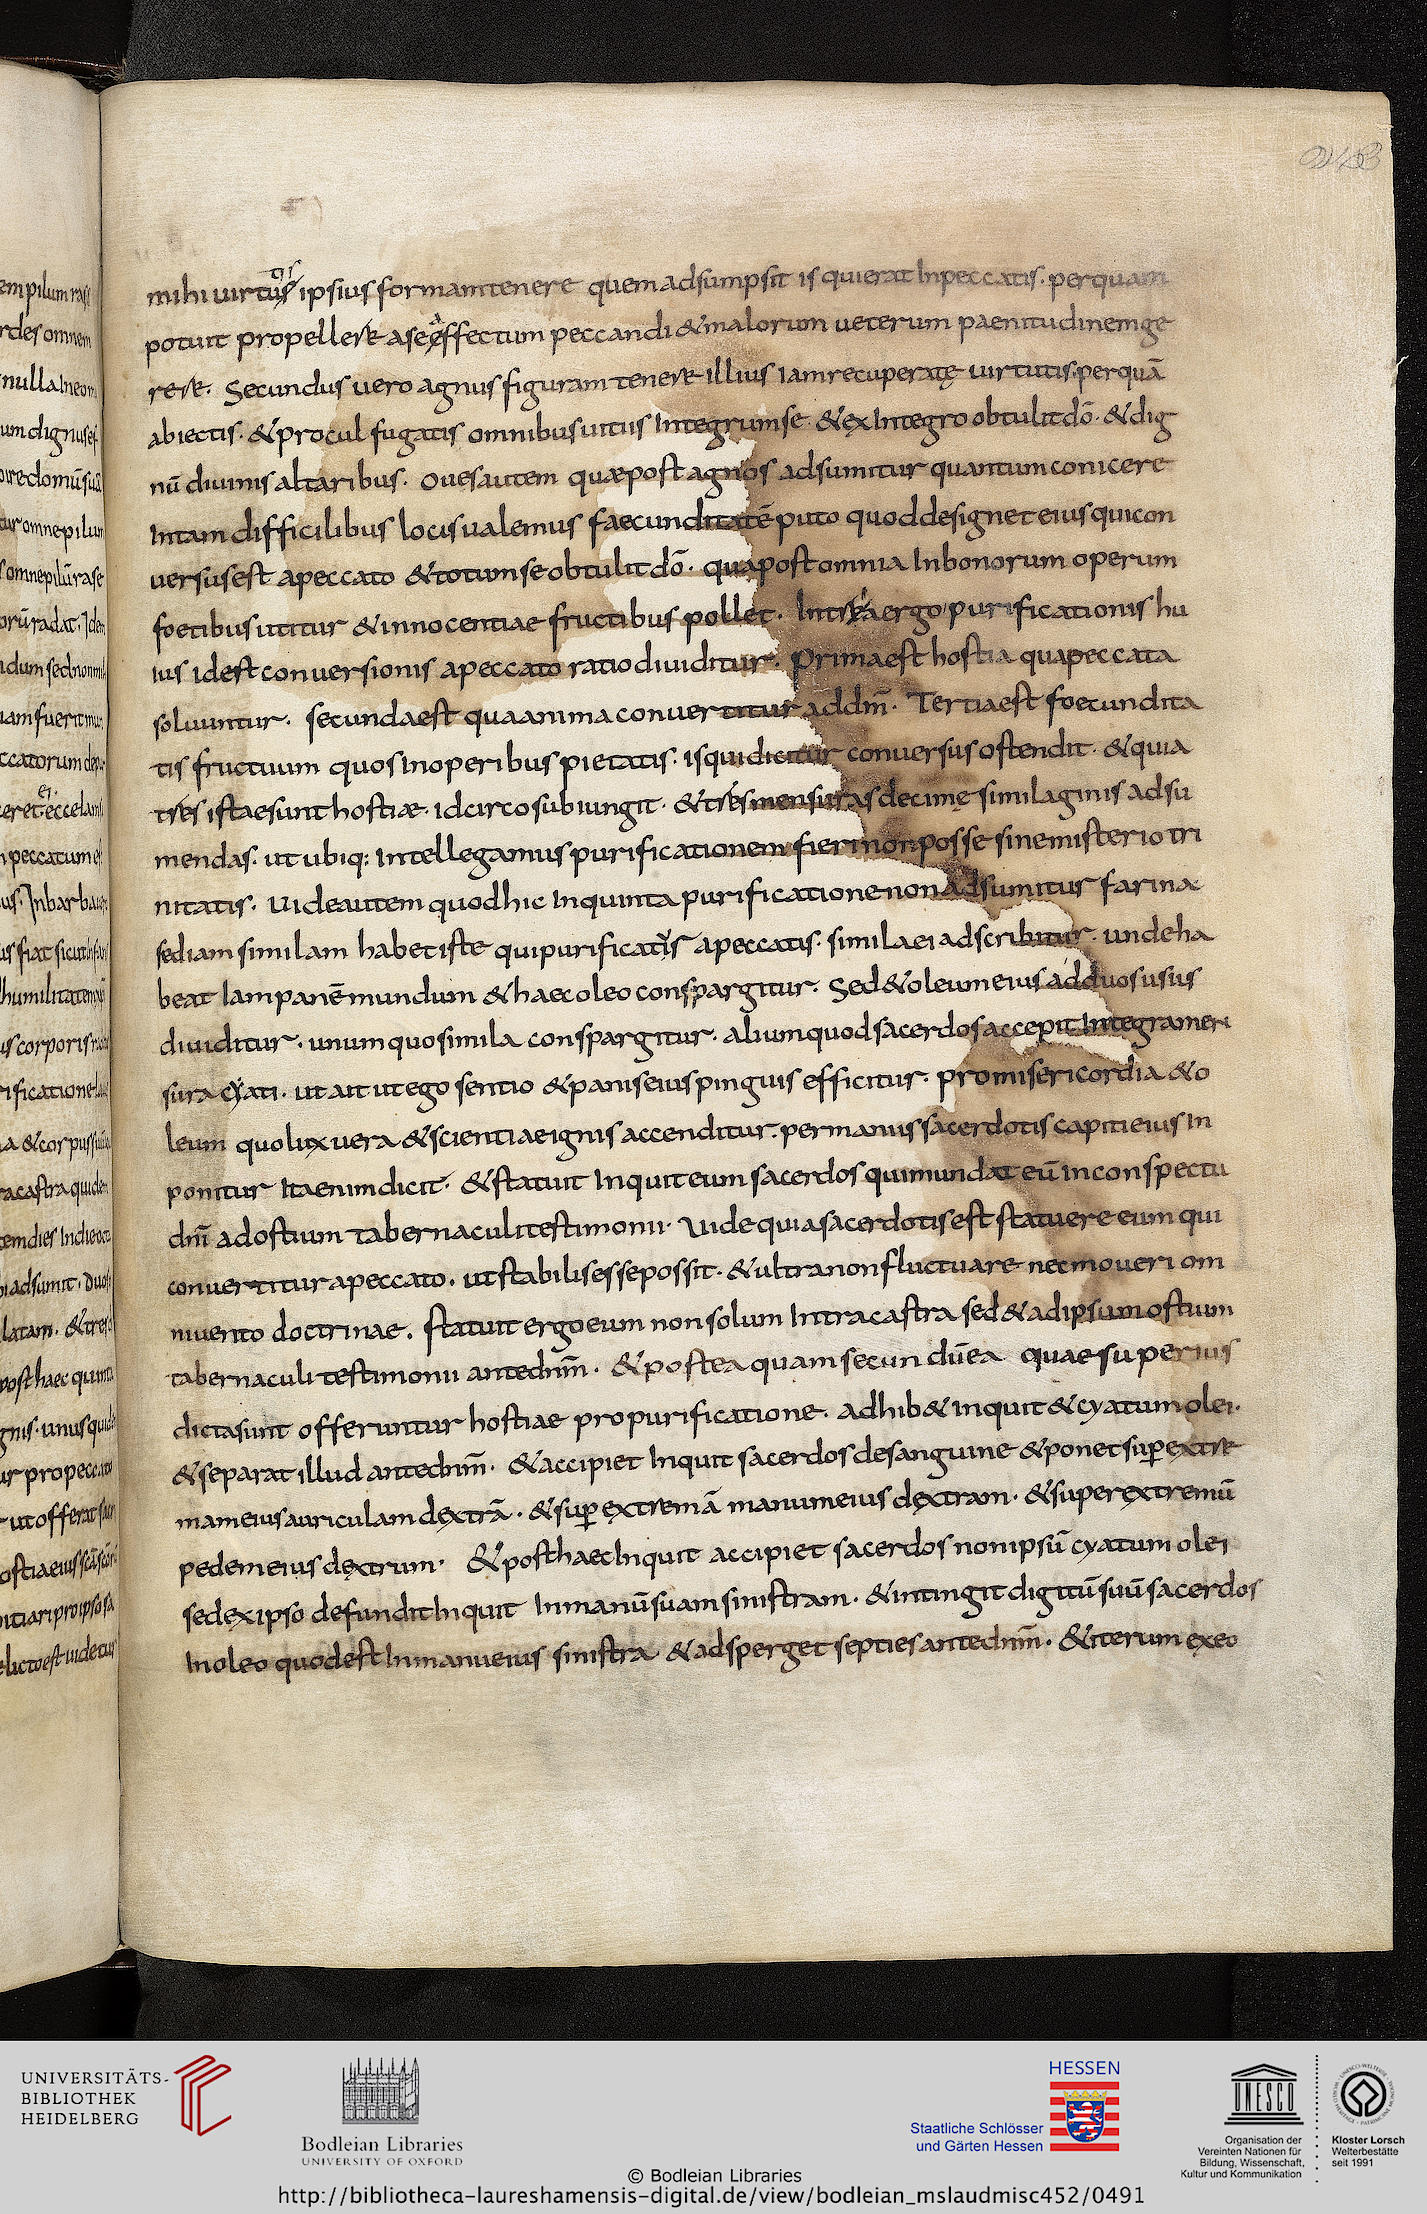 243
mihi uirtus ipsius formam tenere quem adsumpsit is qui erat In peccatis. per quam
potuit propellere a se effectum peccandi & malorum ueterum paenitudinem ge
rere. Secundus uero agnus figuram tenere illius iam recuperatę uirtutis. per quā
abiectis. & procul fugatis omnibus uitiis Integrum se. & ex Integro obtulit dō. & dig
nū diuinis altaribus. Oues autem quae post agnos adsumitur quantum conicere
Intam difficilibus locis ualemus faecunditatē puto quod designet eius qui con
uersus est a peccato & totum se obtulit dō. qua post omnia In bonorum operum
foetibus utitur & innocentiae fructibus pollet. ergo purificationis hu
ius id est conuersionis a peccato ratio diuiditur. Prima est hostia qua peccata
soluuntur. secunda est qua anima conuertitur ad dm̄. Tertia est foecundita
tis fructuum quos in operibus pietatis. is qui dicitur conuersus ostendit. & quia
tres istae sunt hostiae. idcirco subiungit. & tres mensuras decimę similaginis adsu
mendas. ut ubiq: Intellegamus purificationem fieri non posse sine misterio tri
nitatis. Uide autem quod hic In quinta purificatione non adsumitur farina
sed iam similam habet iste qui purificatus a peccatis. simila ei adscribitur. unde ha
beat Iam panē mundum & haec oleo conspargitur. Sed & oleum eius ad duos usus
diuiditur. unum quo simila conspargitur. alium quod sacerdos accepit Integra men
sura cyati. ut ait ut ego sentio & panis eius pinguis efficitur. pro misericordia & o
leum quo lux uera & scientiae ignis accenditur. per manus sacerdotis capiti eius In
ponitur Ita enim dicit. & statuit Inquit eum sacerdos qui mundat eū in conspectu
dm̄i ad ostium tabernaculi testimonii. Uide quia sacerdotis est statuere eum qui
conuertitur a peccato. ut stabilis esse possit. & ultra non fluctuare nec moueri om
ni uento doctrinae. Statuit ergo eum non solum Intra castra sed & ad ipsum ostium
tabernaculi testimonii ante dnm̄. & postea quam secundū ea quae superius
dicta sunt offeruntur hostiae pro purificatione. adhib& inquit & cyatum olei.
& separat illud ante dnm̄. & accipiet Inquit sacerdos de sanguine & ponet sup extre
mam eius auriculam dextrā. & sup extremā manum eius dextram. & super extremū
pedem eius dextrum. & post haec Inquit accipiet sacerdos non ipsū cyatum olei
sed ex ipso defundit Inquit In manū suam sinistram. & intingit digitū suū sacerdos
In oleo quod est In manu eius sinistra & adsperget septies ante dnm̄. & iterum ex eo
UNIVERSITÄTS-
BIBLIOTHEK
HEIDELBERG
Bodleian Libraries
UNIVERSITY OF OXFORD
HESSEN
Staatliche Schlösser
und Gärten Hessen
UNESCO
Organisation der
Vereinten Nationen für
Bildung, Wissenschaft,
Kultur und Kommunikation
Kloster Lorsch
Welterbestätte
seit 1991
© Bodleian Libraries
http://bibliotheca-laureshamensis-digital.de/view/bodleian_mslaudmisc452/0491